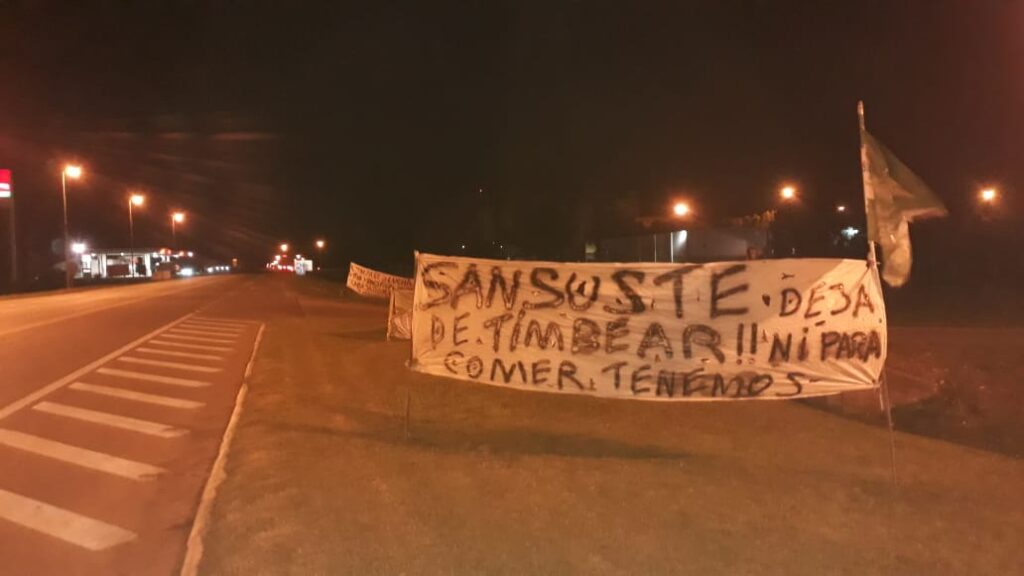 SANSUSTE. DEJA
DE TIMBEAR!! NI PARA
COMER TENEMOS